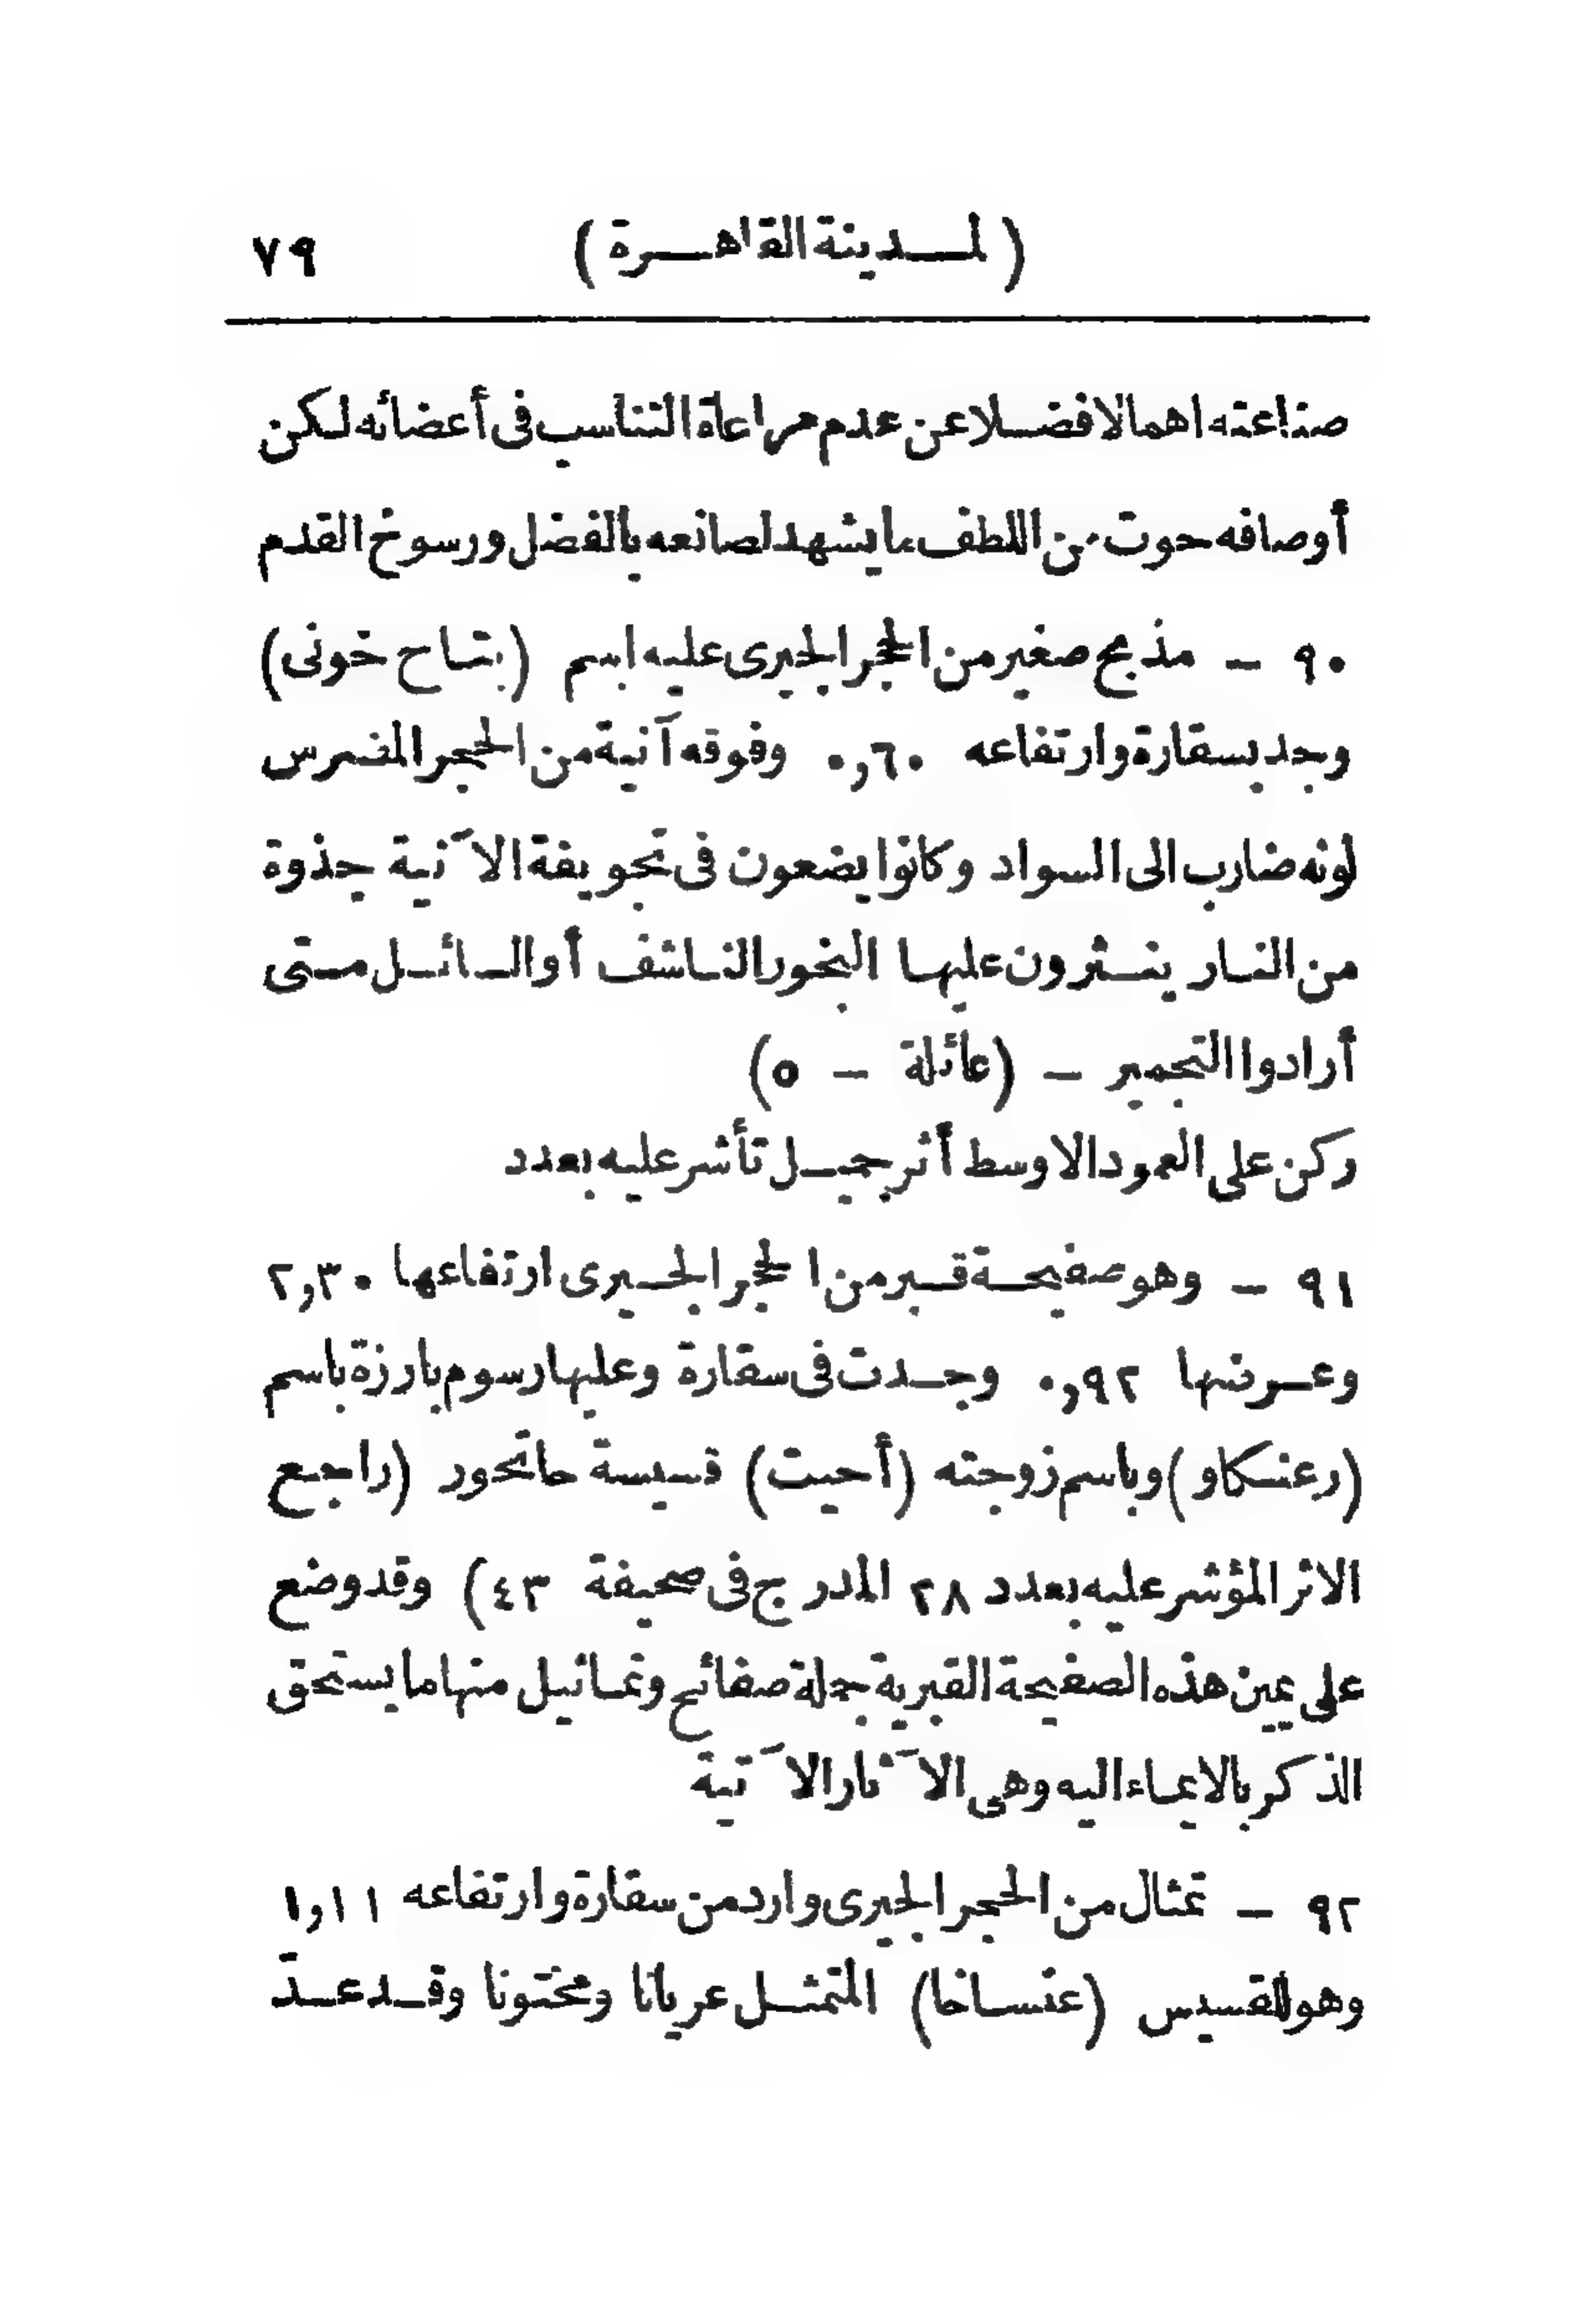 (لمدينة القاهرة) ٧٩
صناعته اهمالا فضلا عن عدم مراعاة التناسب فى أعضائه لكن
أوصافه حوت من اللطف ما يشهد لصانعه بالفضل ورسوخ القدم
٩٠ – مذبح صغير من الحجر الجيرى عليه اسم (بتاح خونى)
وجد بسقارة وارتفاعه ٠,٦٠ وفوقه آنية من الحجر المضرس
لونه ضارب الى السواد وكانوا يضعون فى تجويفة الآنية جذوة
من النار ينثرون عليها البخور الناشف أو السائل متى
أرادوا التجمير – (عائلة – ٥)
ركن على العمود الاوسط أثر جميل تأشر عليه بعدد
٩١ – وهو صفيحة قبر من الحجر الجيرى ارتفاعها ٢,٣٠
وعرضها ٠,٩٢ وجدت فى سقارة وعليها رسوم بارزة باسم
(رعنكاو) وباسم زوجته (أحيت) قسيسة حاتحور (راجع
الاثر المؤشر عليه بعدد ٢٨ المدرج فى صحيفة ٤٣) وقد وضع
على يمين هذه الصفيحة القبرية جملة صفائح وتماثيل منها ما يستحق
الذكر بالايماء اليه وهى الآثار الآتية
٩٢ – تمثال من الحجر الجيرى وارد من سقارة وارتفاعه ١,١١
وهو للقسيس (عنساخا) المتمثل عريانا ومختونا وقد عدّ